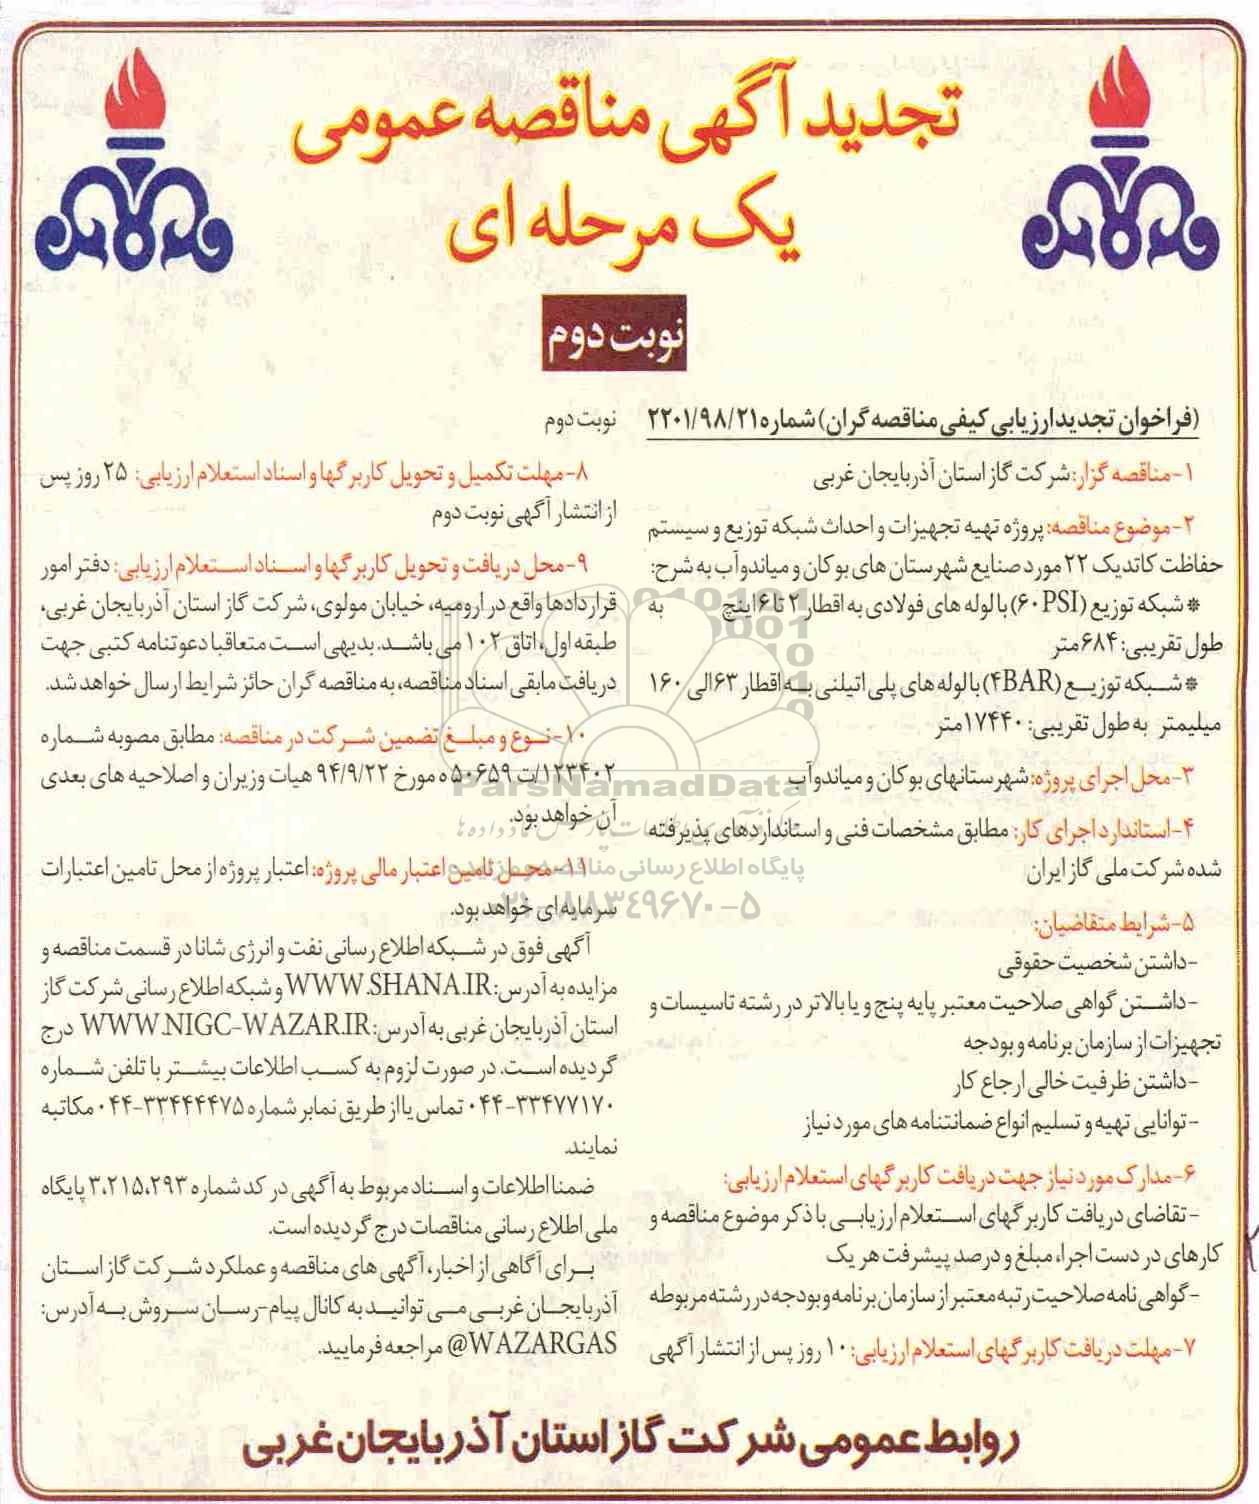 تجدید آگهی مناقصه عمومی
یک مرحله ای
نوبت دوم
(فراخوان تجدیدارزیابی کیفی مناقصه گران) شماره ۲۲۰۱/۹۸/۲۱
۱-مناقصه گزار: شرکت گاز استان آذربایجان غربی
۲-موضوع مناقصه: پروژه تهیه تجهیزات و احداث شبکه توزیع و سیستم
حفاظت کاتدیک ۲۲ مورد صنایع شهرستان های بوکان و میاندوآب به شرح:
* شبکه توزیع (۶۰PSI) با لوله های فولادی به اقطار ۲ تا ۶ اینچ به
طول تقریبی: ۶۸۴ متر
* شبکه توزیع (۴BAR) با لوله های پلی اتیلنی به اقطار ۶۳ الی ۱۶۰
میلیمتر به طول تقریبی: ۱۷۴۴۰ متر
۳-محل اجرای پروژه: شهرستانهای بوکان و میاندوآب
۴-استاندارد اجرای کار: مطابق مشخصات فنی و استانداردهای پذیرفته
شده شرکت ملی گاز ایران
۵-شرایط متقاضیان:
-داشتن شخصیت حقوقی
-داشتن گواهی صلاحیت معتبر پایه پنج و یا بالاتر در رشته تاسیسات و
تجهیزات از سازمان برنامه و بودجه
-داشتن ظرفیت خالی ارجاع کار
-توانایی تهیه و تسلیم انواع ضمانتنامه های مورد نیاز
۶-مدارک مورد نیاز جهت دریافت کاربرگهای استعلام ارزیابی:
-تقاضای دریافت کاربرگهای استعلام ارزیابی با ذکر موضوع مناقصه و
کارهای در دست اجرا، مبلغ و درصد پیشرفت هر یک
-گواهی نامه صلاحیت رتبه معتبر از سازمان برنامه و بودجه در رشته مربوطه
۷-مهلت دریافت کاربرگهای استعلام ارزیابی: ۱۰ روز پس از انتشار آگهی
نوبت دوم
۸-مهلت تکمیل و تحویل کاربرگها و اسناد استعلام ارزیابی: ۲۵ روز پس
از انتشار آگهی نوبت دوم
۹-محل دریافت و تحویل کاربرگها و اسناد استعلام ارزیابی: دفتر امور
قراردادها واقع در ارومیه، خیابان مولوی، شرکت گاز استان آذربایجان غربی،
طبقه اول، اتاق ۱۰۲ می باشد. بدیهی است متعاقبا دعوتنامه کتبی جهت
دریافت مابقی اسناد مناقصه، به مناقصه گران حائز شرایط ارسال خواهد شد.
۱۰-نوع و مبلغ تضمین شرکت در مناقصه: مطابق مصوبه شماره
۱۲۳۴۰۲/ت ۵۰۶۵۹ ه مورخ ۹۴/۹/۲۲ هیات وزیران و اصلاحیه های بعدی
آن خواهد بود.
۱۱-محل تامین اعتبار مالی پروژه: اعتبار پروژه از محل تامین اعتبارات
سرمایه ای خواهد بود.
آگهی فوق در شبکه اطلاع رسانی نفت و انرژی شانا در قسمت مناقصه و
مزایده به آدرس: WWW.SHANA.IR و شبکه اطلاع رسانی شرکت گاز
استان آذربایجان غربی به آدرس: WWW.NIGC-WAZAR.IR درج
گردیده است. در صورت لزوم به کسب اطلاعات بیشتر با تلفن شماره
۰۴۴-۳۳۴۷۷۱۷۰ تماس یا از طریق نمابر شماره ۰۴۴-۳۳۴۴۴۴۷۵ مکاتبه
نمایند.
ضمنا اطلاعات و اسناد مربوط به آگهی در کد شماره ۳،۲۱۵،۲۹۳ پایگاه
ملی اطلاع رسانی مناقصات درج گردیده است.
برای آگاهی از اخبار، آگهی های مناقصه و عملکرد شرکت گاز استان
آذربایجان غربی می توانید به کانال پیام-رسان سروش به آدرس:
@WAZARGAS مراجعه فرمایید.
روابط عمومی شرکت گاز استان آذربایجان غربی
ParsNamadData
پایگاه اطلاع رسانی مناقصه و مزایده
۰۲۱-۸۸۳۴۹۶۷۰-۵